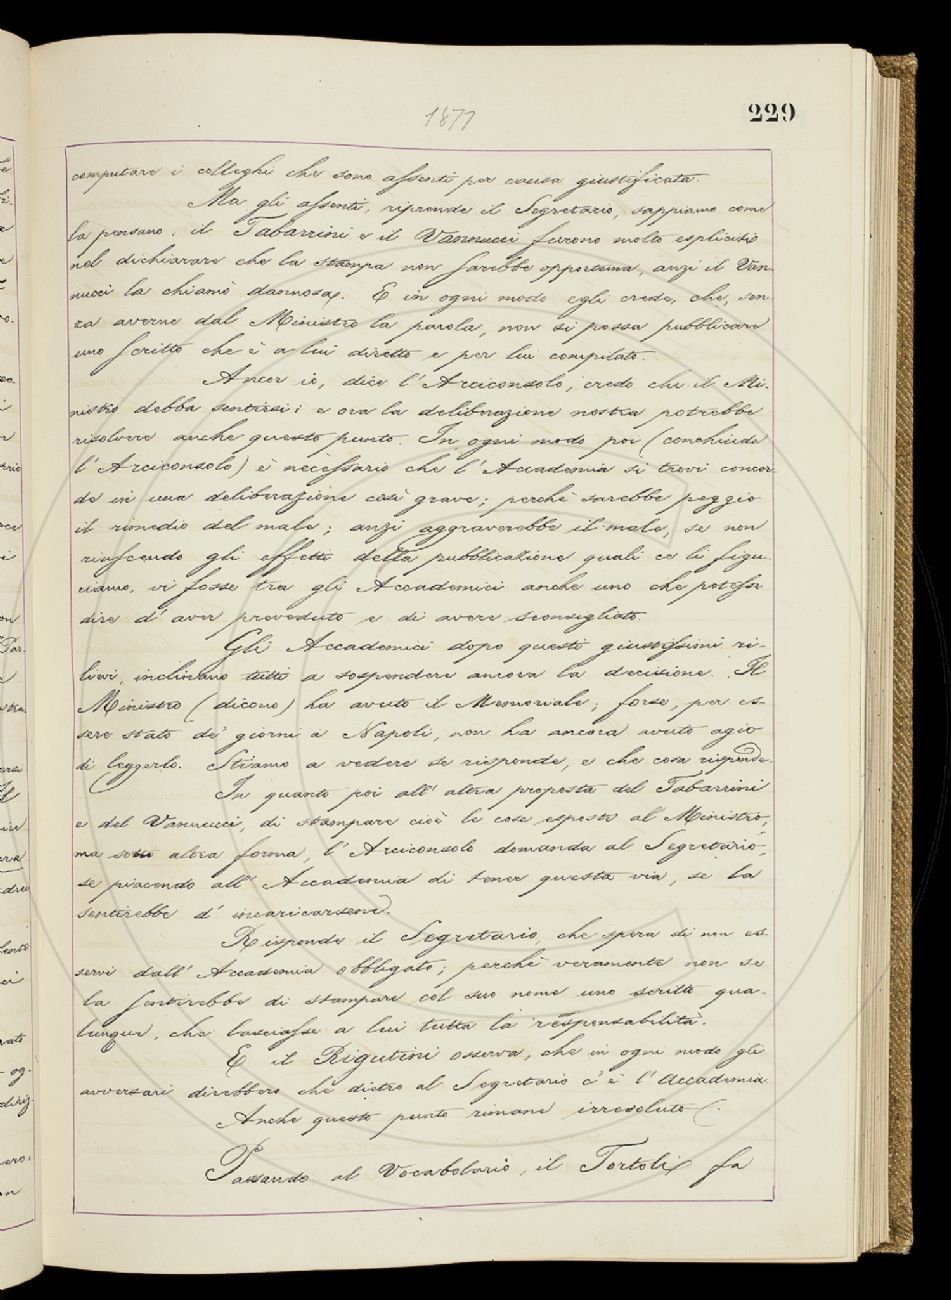 1877
229
computare i colleghi che sono assenti per causa giustificata.
Ma gli assenti, riprende il Segretario, sappiamo come
la pensano. il Tabarrini e il Vannucci furono molto espliciti
nel dichiarare che la stampa non sarebbe opportuna, anzi il Van-
nucci la chiamò dannosa. E in ogni modo egli crede, che, sen-
za averne dal Ministro la parola, non si possa pubblicare
uno scritto che è a lui diretto e per lui compilato.
Ancor io, dice l'Arciconsolo, credo che il Mi-
nistro debba sentirsi; e ora la deliberazione nostra potrebbe
risolvere anche questo punto. In ogni modo poi (conchiude
l'Arciconsolo) è necessario che l'Accademia si trovi concor-
de in una deliberazione così grave; perchè sarebbe peggio
il rimedio del male; anzi aggraverebbe il male, se non
riuscendo gli effetti della pubblicazione quali ce li figu-
riamo, vi fosse tra gli Accademici anche uno che potesse
dire d'aver preveduto e di avere sconsigliato.
Gli Accademici dopo questi giustissimi ri-
lievi, inclinano tutti a sospendere ancora la decisione. Il
Ministro (dicono) ha avuto il Memoriale; forse, per es-
sere stato de' giorni a Napoli, non ha ancora avuto agio
di leggerlo. Stiamo a vedere se risponde, e che cosa risponde.
In quanto poi all'altra proposta del Tabarrini
e del Vannucci, di stampare cioè le cose esposte al Ministro,
ma sotto altra forma, l'Arciconsolo domanda al Segretario,
se piacendo all'Accademia di tener questa via, se la
sentirebbe d'incaricarsene.
Risponde il Segretario, che spera di non es-
servi dall'Accademia obbligato; perchè veramente non se
la sentirebbe di stampare col suo nome uno scritto qua-
lunque, che lasciasse a lui tutta la responsabilità.
E il Rigutini osserva, che in ogni modo gli
avversari direbbero che dietro al Segretario c'è l'Accademia.
Anche questo punto rimane irresoluto.
Passando al Vocabolario, il Tortoli fa